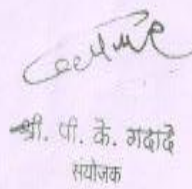 श्री. पी. के. गदादे
संयोजक